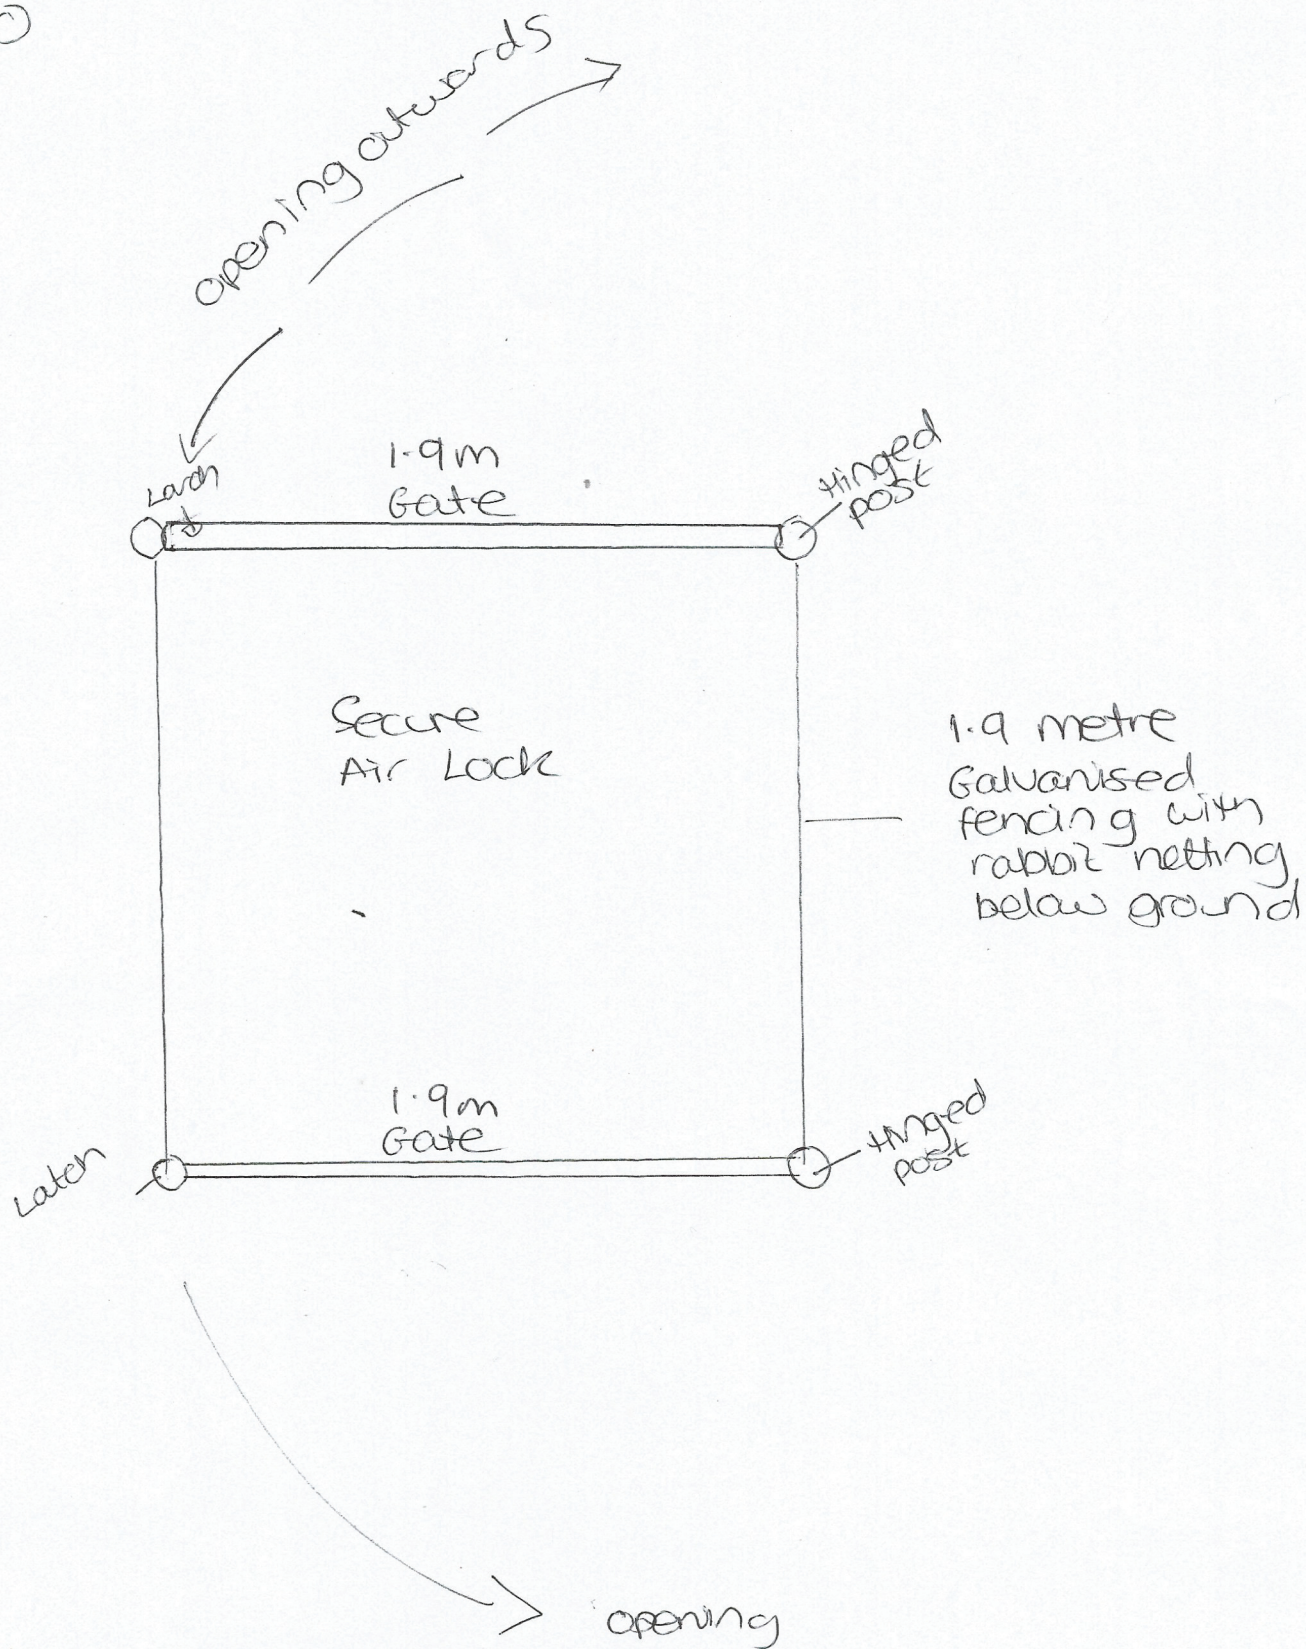 opening outwards
Latch
1.9m
Gate
Hinged
post
Secure
Air Lock
1.9 metre
Galvanised
fencing with
rabbit netting
below ground
1.9m
Gate
Latch
Hinged
post
opening